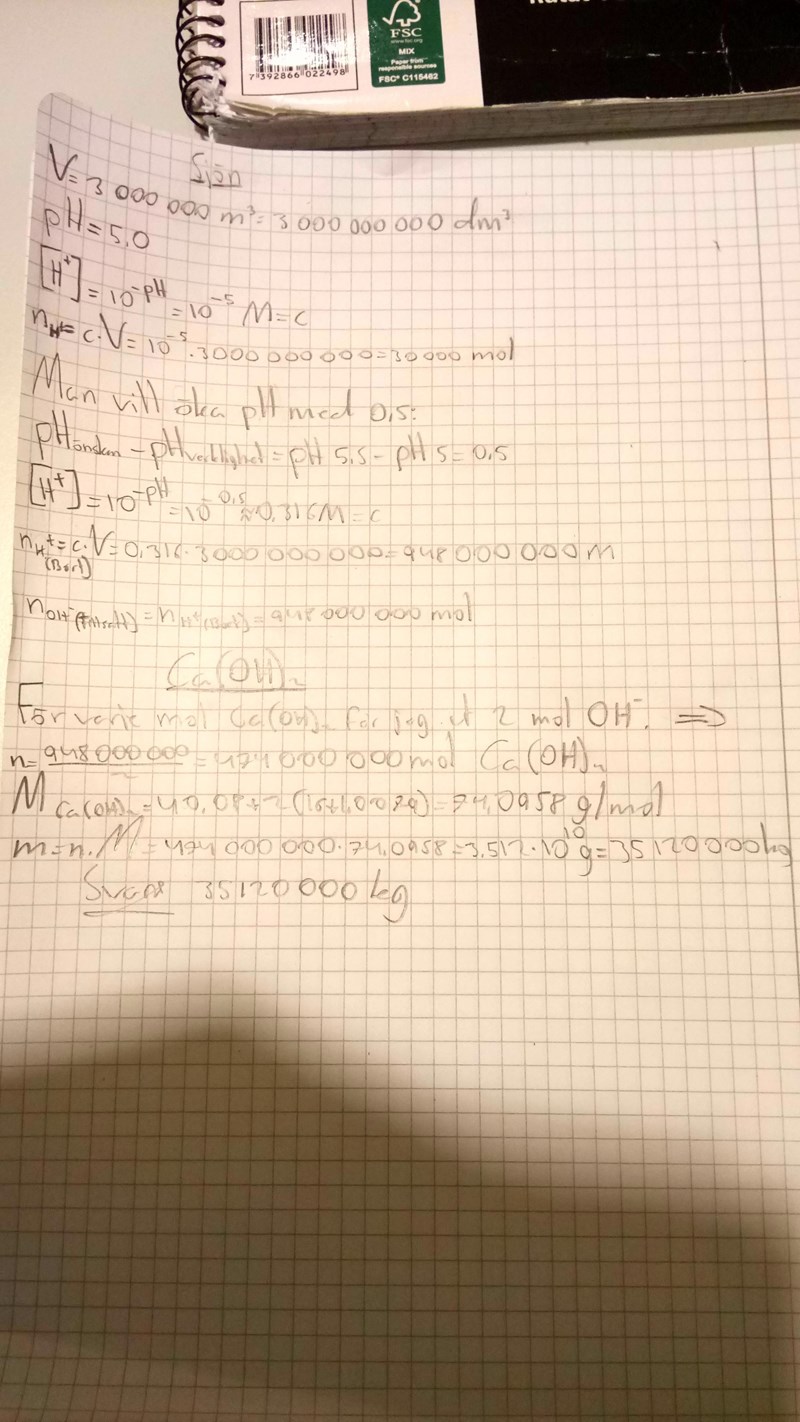 FSC
www.fsc.org
MIX
Paper from
responsible sources
FSC® C115462
7 392866 022498
Sjön
V = 3 000 000 m³ = 3 000 000 000 dm³
pH = 5,0
[H⁺] = 10⁻ᵖᴴ = 10⁻⁵ M = c
n_H⁺ = c·V = 10⁻⁵·3000 000 000 = 30000 mol
Man vill öka pH med 0,5:
pHönskan - pHverklighet = pH 5,5 - pH 5 = 0,5
[H⁺] = 10⁻ᵖᴴ = 10⁻⁰,⁵ ≈ 0,316M = c
n_H⁺ = c·V = 0,316·3000 000 000 = 948 000 000 M
(Bort)
n_OH⁻ = n_H⁺(Bort) = 948 000 000 mol
Ca(OH)₂
För varje mol Ca(OH)₂ får jag ut 2 mol OH⁻. ⇒
n = 948 000 000 / 2 = 474 000 000 mol Ca(OH)₂
M Ca(OH)₂ = 40,08+2·(16+1,0079) = 74,0958 g/mol
m = n·M = 474 000 000·74,0958 = 3,512·10¹⁰ g = 35120000 kg
Svar: 35120000 kg